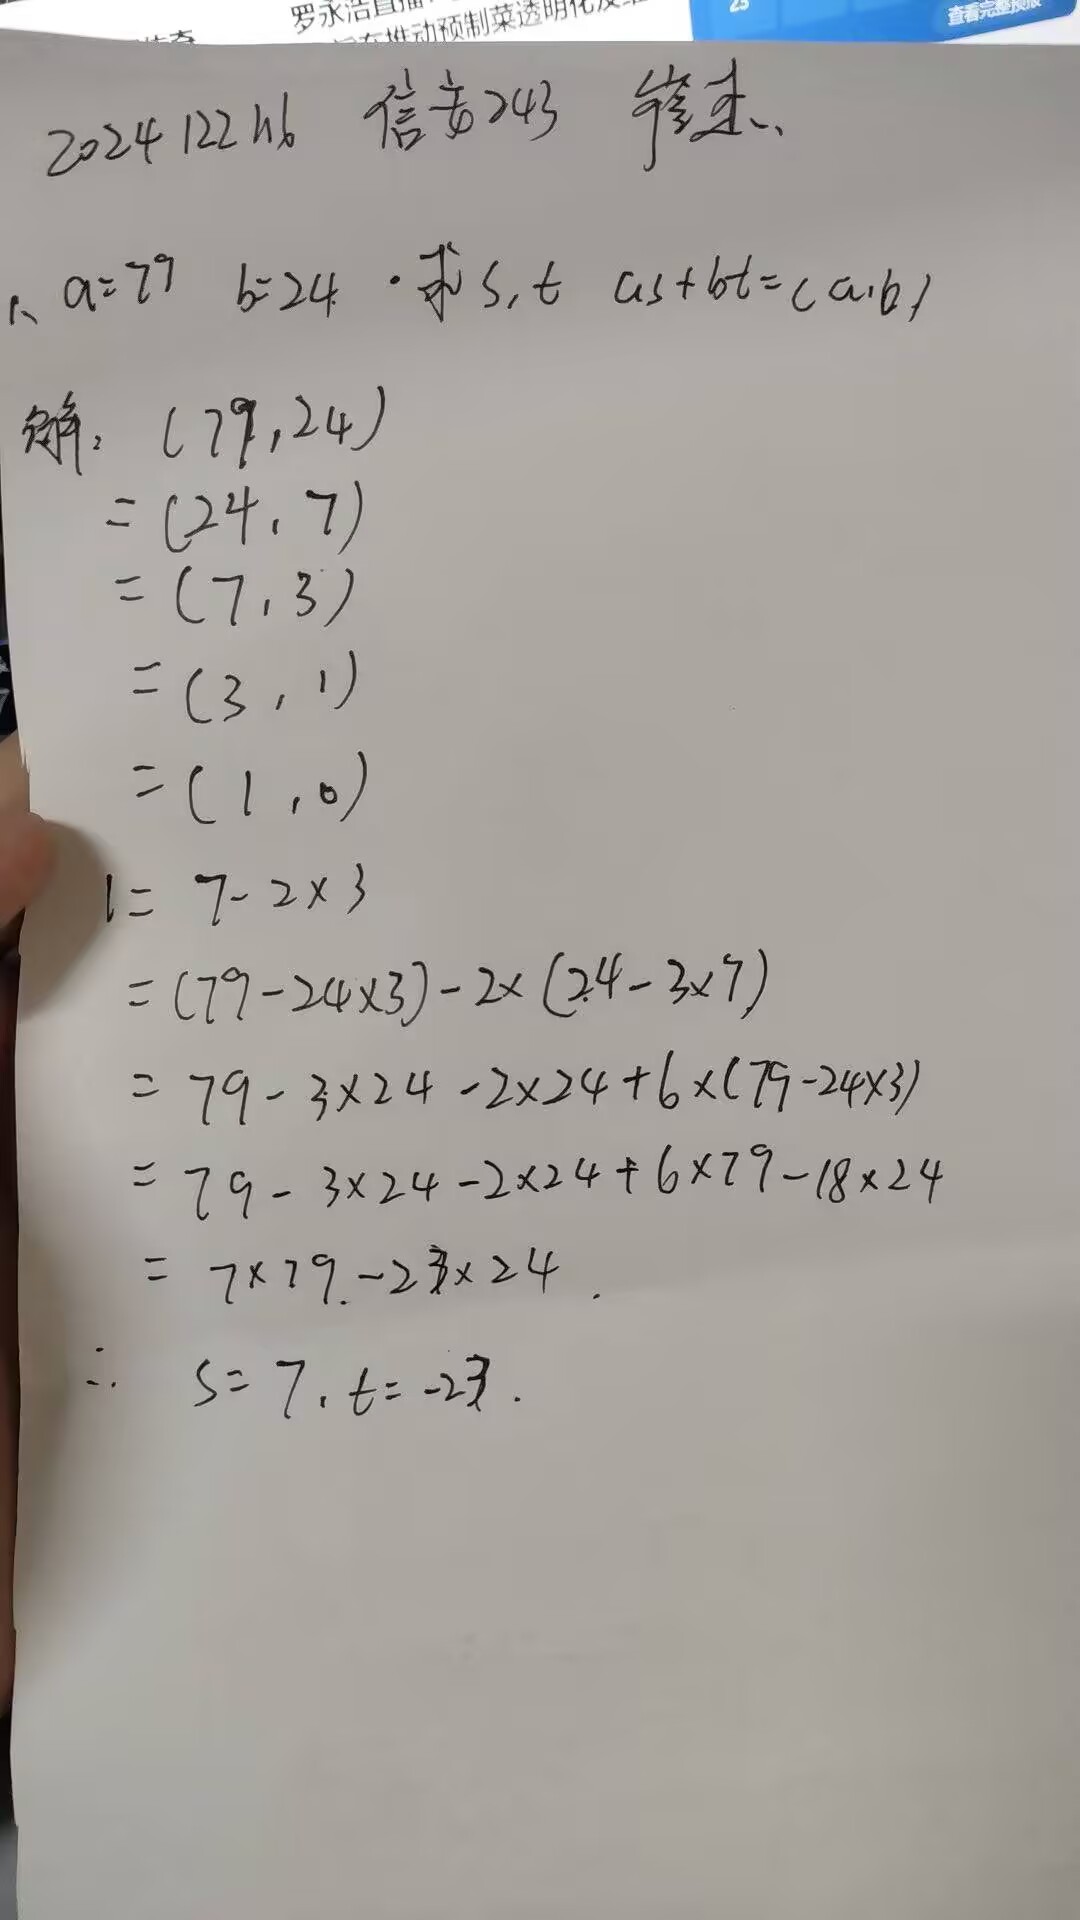 罗永浩直播
推动预制菜透明化及
25
查看完整预报
2024122116 信安243
1、a=79 b=24 · 求s,t as+bt=(a,b)
解: (79,24)
=(24,7)
=(7,3)
=(3,1)
=(1,0)
1= 7-2×3
=(79-24×3)-2×(24-3×7)
=79-3×24-2×24+6×(79-24×3)
=79-3×24-2×24+6×79-18×24
=7×79-23×24.
∴ s=7,t=-23.